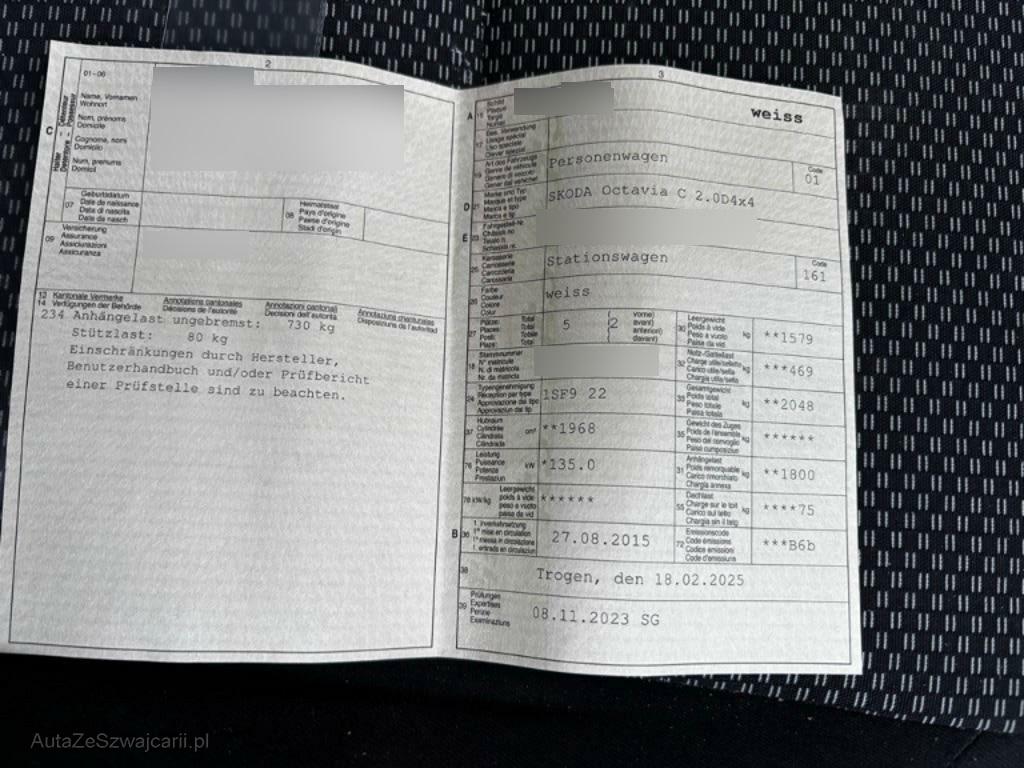 2
01-06
C
Halter
Détenteur
Detentore
Possessur
Name, Vornamen
Wohnort
Nom, prénoms
Domicile
Cognome, nomi
Domicilio
Num, prenums
Domicil
07
Geburtsdatum
Date de naissance
Data di nascita
Data da nasch.
08
Heimatstaat
Pays d'origine
Paese d'origine
Stadi d'origin
09
Versicherung
Assurance
Assicurazioni
Assicuranza
13 Kantonale Vermerke
14 Verfügungen der Behörde
Annotations cantonales
Décisions de l'autorité
Annotazioni cantonali
Decisioni dell'autorità
Annotaziuns chantunalas
Disposiziuns da l'autoritad
234 Anhängelast ungebremst: 730 kg
Stützlast: 80 kg
Einschränkungen durch Hersteller,
Benutzerhandbuch und/oder Prüfbericht
einer Prüfstelle sind zu beachten.
3
A 15
Schild
Plaque
Targa
Numer
weiss
17
Bes. Verwendung
Usage spécial
Uso speciale
Diever spezial
19
Art des Fahrzeugs
Genre de véhicule
Genere di veicolo
Gener dal vehichel
Personenwagen
Code
01
D 21
Marke und Typ
Marque et type
Marca e tipo
Marca e tip
SKODA Octavia C 2.0D4x4
E 23
Fahrgestell-Nr.
Châssis no
Telaio n.
Schassis nr.
25
Karosserie
Carrosserie
Carrozzeria
Carossaria
Stationswagen
Code
161
26
Farbe
Couleur
Colore
Colur
weiss
27
Plätze: Total
Places: Total
Posti: Totale
Plazs: Total
5
(2
vorne)
avant)
anteriori)
davant)
30
Leergewicht
Poids à vide
Peso a vuoto
Paisa da vid
kg
**1579
18
Stammnummer
N° matricule
N. di matricola
Nr. da matricla
32
Nutz-/Sattellast
Charge utile/sellette
Carico utile/sella
Chargia utila/sella
kg
***469
24
Typengenehmigung
Réception par type
Approvazione del tipo
Approvaziun dal tip
1SF9 22
33
Gesamtgewicht
Poids total
Peso totale
Paisa totala
kg
**2048
37
Hubraum
Cylindrée
Cilindrata
Cilindrada
cm³
**1968
35
Gewicht des Zuges
Poids de l'ensemble
Peso del convoglio
Paisa cumposiziun
kg
******
76
Leistung
Puissance
Potenza
Prestaziun
kW
*135.0
31
Anhängelast
Poids remorquable
Carico rimorchiato
Chargia annexa
kg
**1800
78 kW/kg
Leergewicht
poids à vide
peso a vuoto
paisa da vid
******
55
Dachlast
Charge sur le toit
Carico sul tetto
Chargia sin il tetg
kg
****75
B 36
1. Inverkehrsetzung
1re mise en circulation
1a messa in circolazione
1. entrada en circulaziun
27.08.2015
72
Emissionscode
Code émissions
Codice emissioni
Code d'emissiuns
***B6b
38
Trogen, den 18.02.2025
39
Prüfungen
Expertises
Perizie
Examinaziuns
08.11.2023 SG
AutaZeSzwajcarii.pl